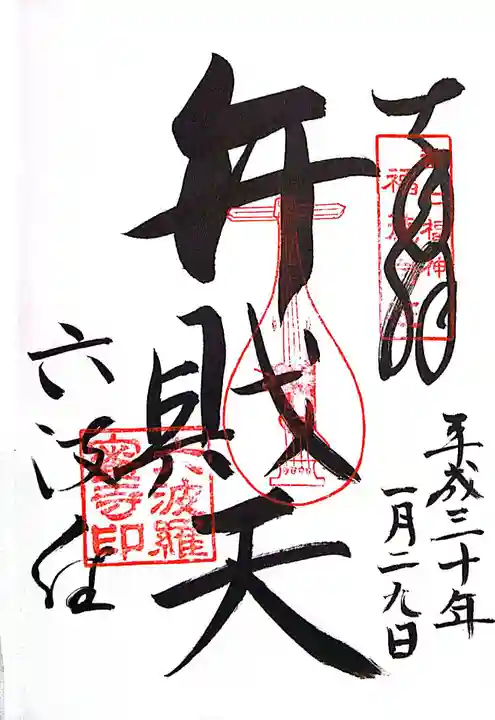 奉拝
都七福神
平成三十年
一月二九日
弁財天
六波羅
蜜寺印
六波